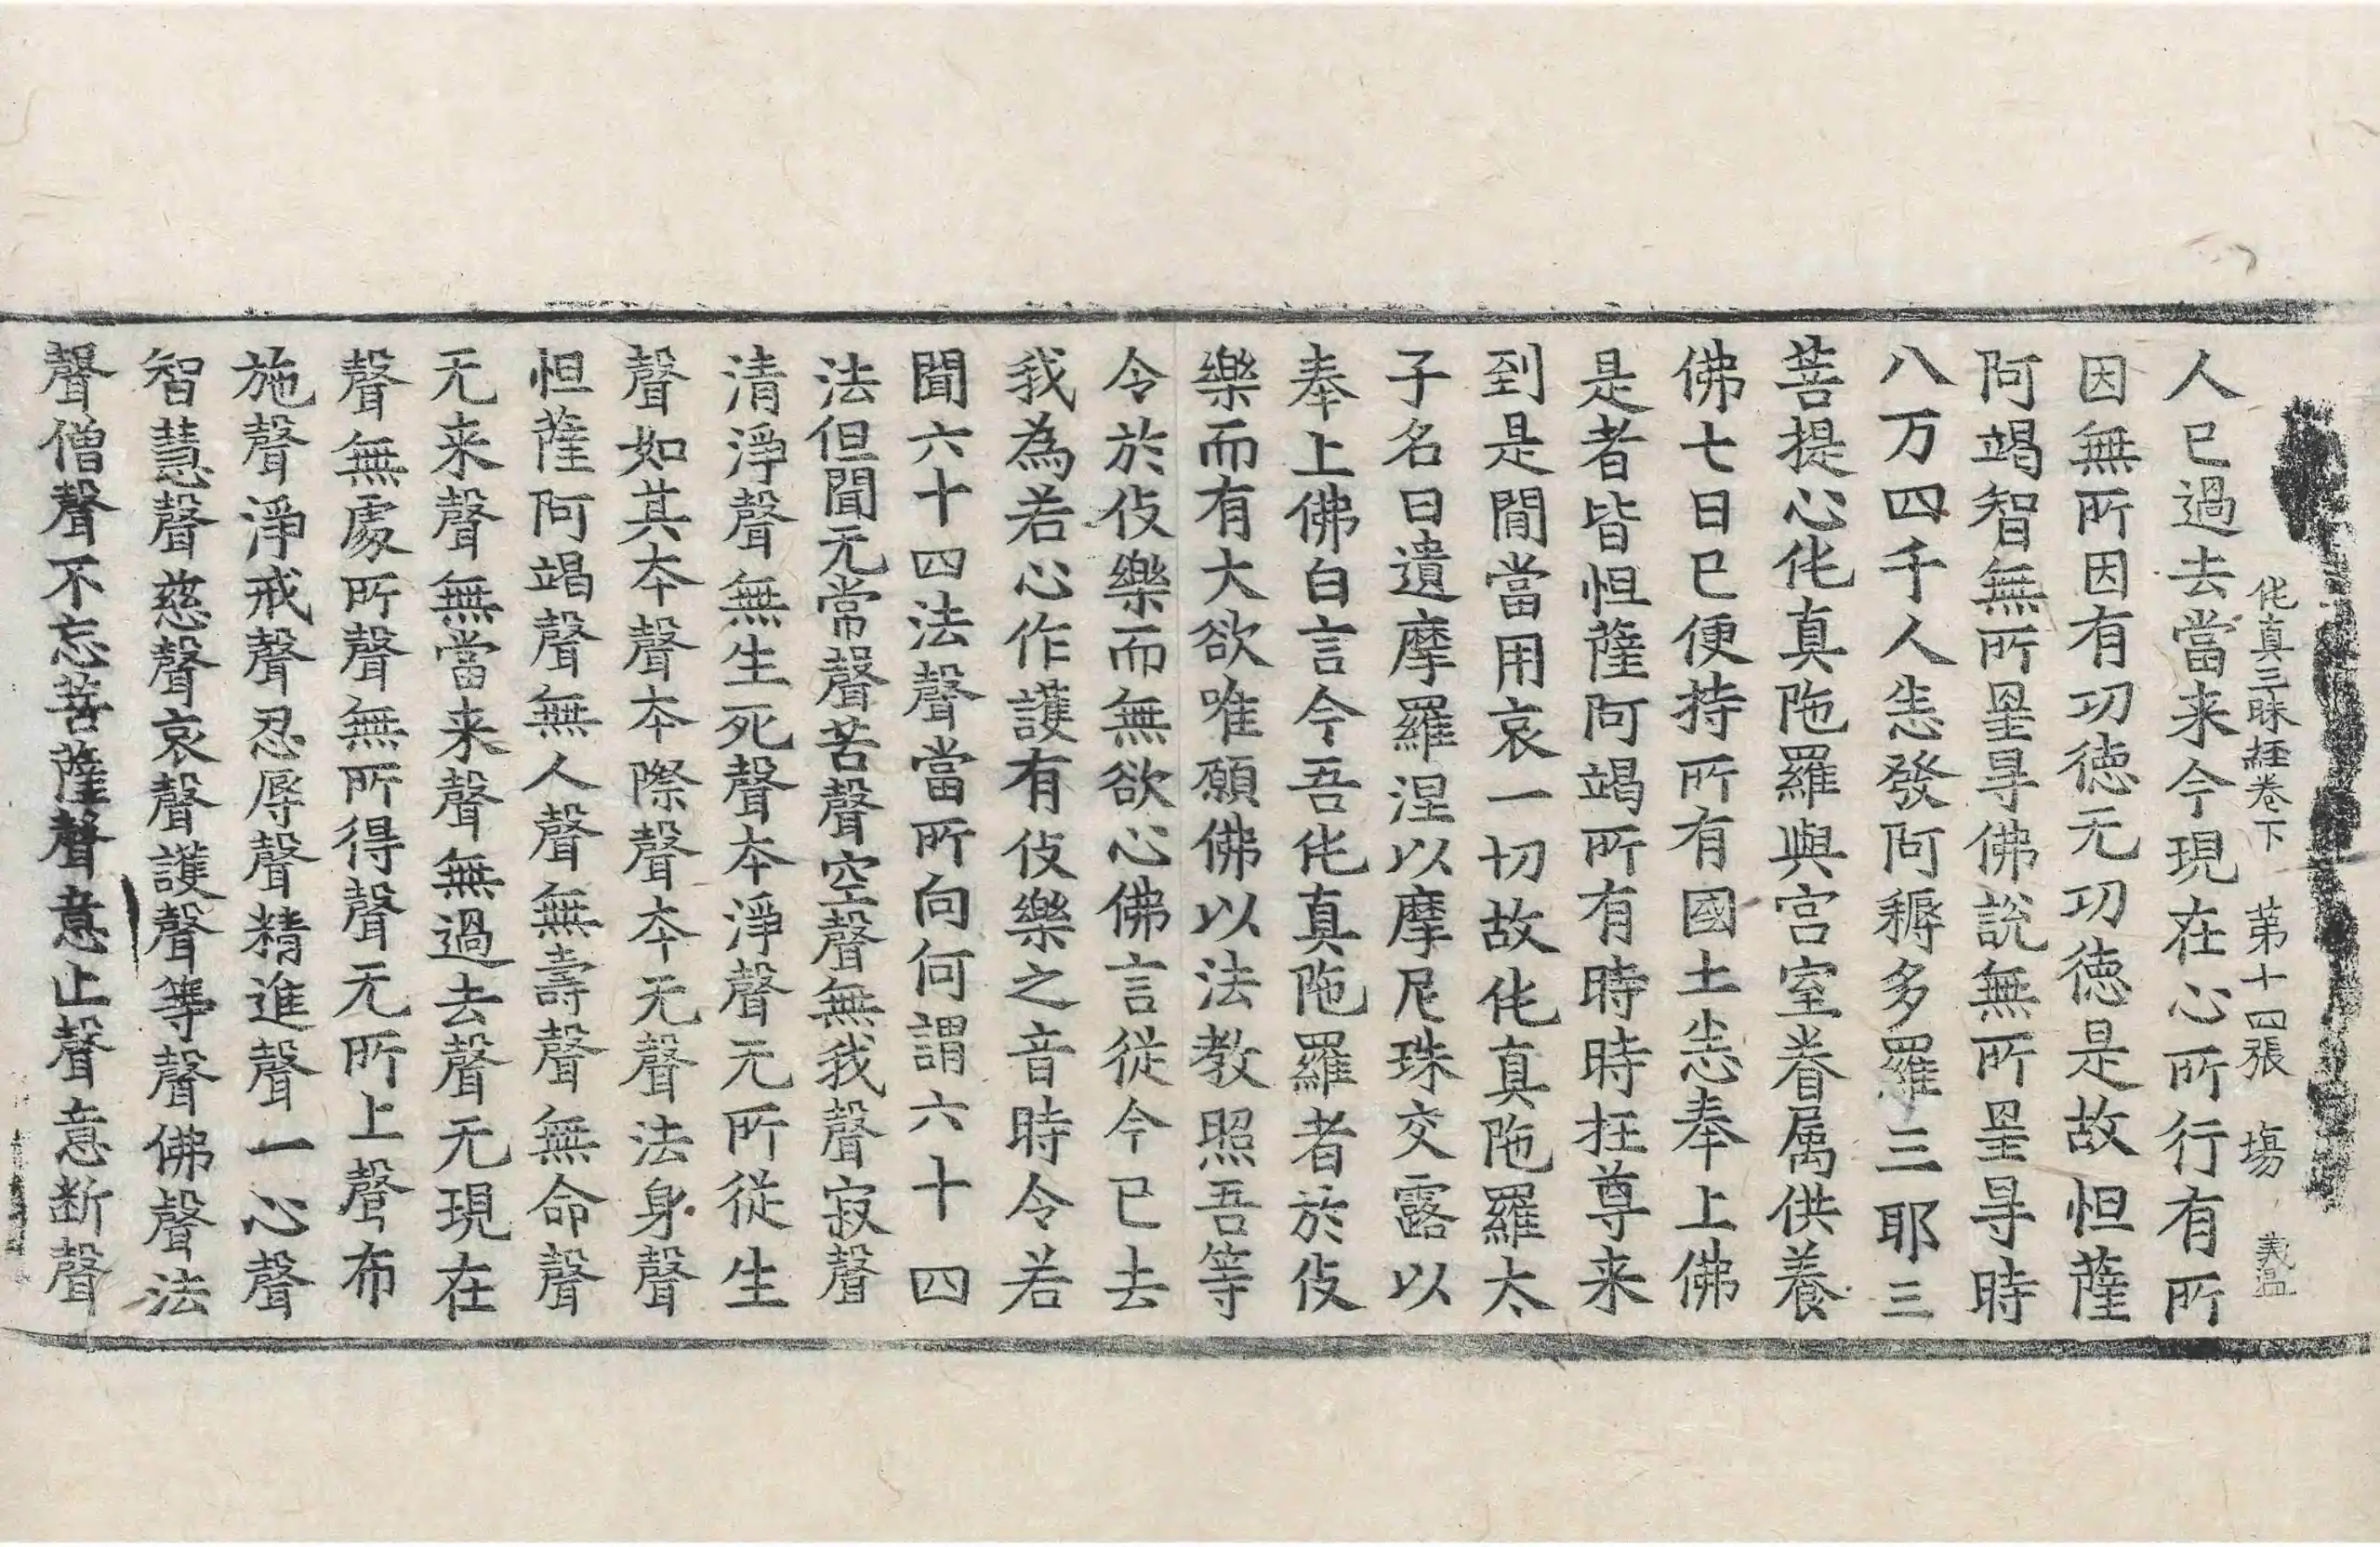 佗真三昧経卷下　第十四張　塲　義温
人已過去當来今現在心所行有所
因無所因有功徳无功徳是故怛薩
阿竭智無所罣㝵佛說無所罣㝵時
八万四千人悉發阿耨多羅三耶三
菩提心佗真陁羅與宫室眷属供養
佛七日已便持所有國土悉奉上佛
是者皆怛薩阿竭所有時時抂尊来
到是閒當用哀一切故佗真陁羅太
子名曰遺摩羅涅以摩尼珠交露以
奉上佛白言今吾佗真陁羅者於伎
樂而有大欲唯願佛以法教照吾等
令於伎樂而無欲心佛言從今已去
我為若心作護有伎樂之音時令若
聞六十四法聲當所向何謂六十四
法但聞无常聲苦聲空聲無我聲寂聲
清淨聲無生死聲夲淨聲无所從生
聲如其夲聲夲際聲夲无聲法身聲
怛薩阿竭聲無人聲無壽聲無命聲
无来聲無當来聲無過去聲无現在
聲無處所聲無所得聲无所上聲布
施聲淨戒聲忍辱聲精進聲一心聲
智慧聲慈聲哀聲護聲等聲佛聲法
聲僧聲不忘菩薩聲意止聲意断聲